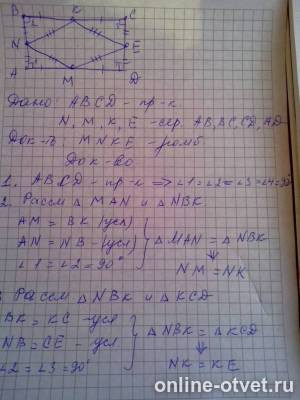 B K C
N E
A M D
Дано: ABCD - пр-к
N, M, K, E - сер. AB, BC, CD, AD
Док-ть: MNKE - ромб
Док-во
1. ABCD - пр-к => ∠1=∠2=∠3=∠4=90°
2. Рассм △ MAN и △NBK
AM = BK (усл)
AN = NB - (усл)
∠1=∠2=90°
△MAN = △NBK
⇓
NM = NK
Рассм △NBK и △KCD
BK = KC - усл
NB = CE - усл
∠2=∠3=90°
△NBK = △KCD
⇓
NK = KE
online-otvet.ru